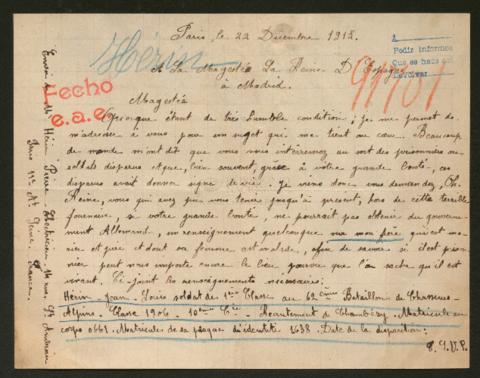 Paris, le 22 Décembre 1915.
Hérin
A
Pedir informes
Que se haga así
A Sa Magesté La Reine D'Espagne
à Madrid.
Fecho
e.a.e.
Magesté
Quoique étant de très humble condition; je me permet de
m'adresser à vous pour un sujet qui me tient au cœur. Beaucoup
de monde m'ont dit que vous vous intéressiez au sort des prisonniers ou
soldats disparus et que, bien souvent, grâce à votre grande bonté, ces
disparus avait donner signe de vie. Je viens donc vous demander, Oh.
Reine, vous qui avez pu vous tenir jusqu'à présent, hors de cette terrible
fournaise, si votre grande bonté, ne pourrait pas obtenir du gouverne-
ment Allemand, un renseignement quelconque sur mon frère qui est ma-
rié et père et dont sa femme est malade, afin de savoir si il est prison-
nier peut nous importe encore le lieu pourvu que l'on sache qu'il est
vivant. Ci-joint les renseignements nécessaires:
Hérin Jean. soldat de 1ère Classe au 62ème Bataillon de Chasseurs
Alpins. Classe 1906. 10ème Cie. Recrutement de Chambéry. Matricule au
corps 0661. Matricule de sa plaque d'identité 1638. Date de la disparition:
T.S.V.P.
Envoi de M. Hérin Pierre Electricien
Paris 11e Art. Seine. France.